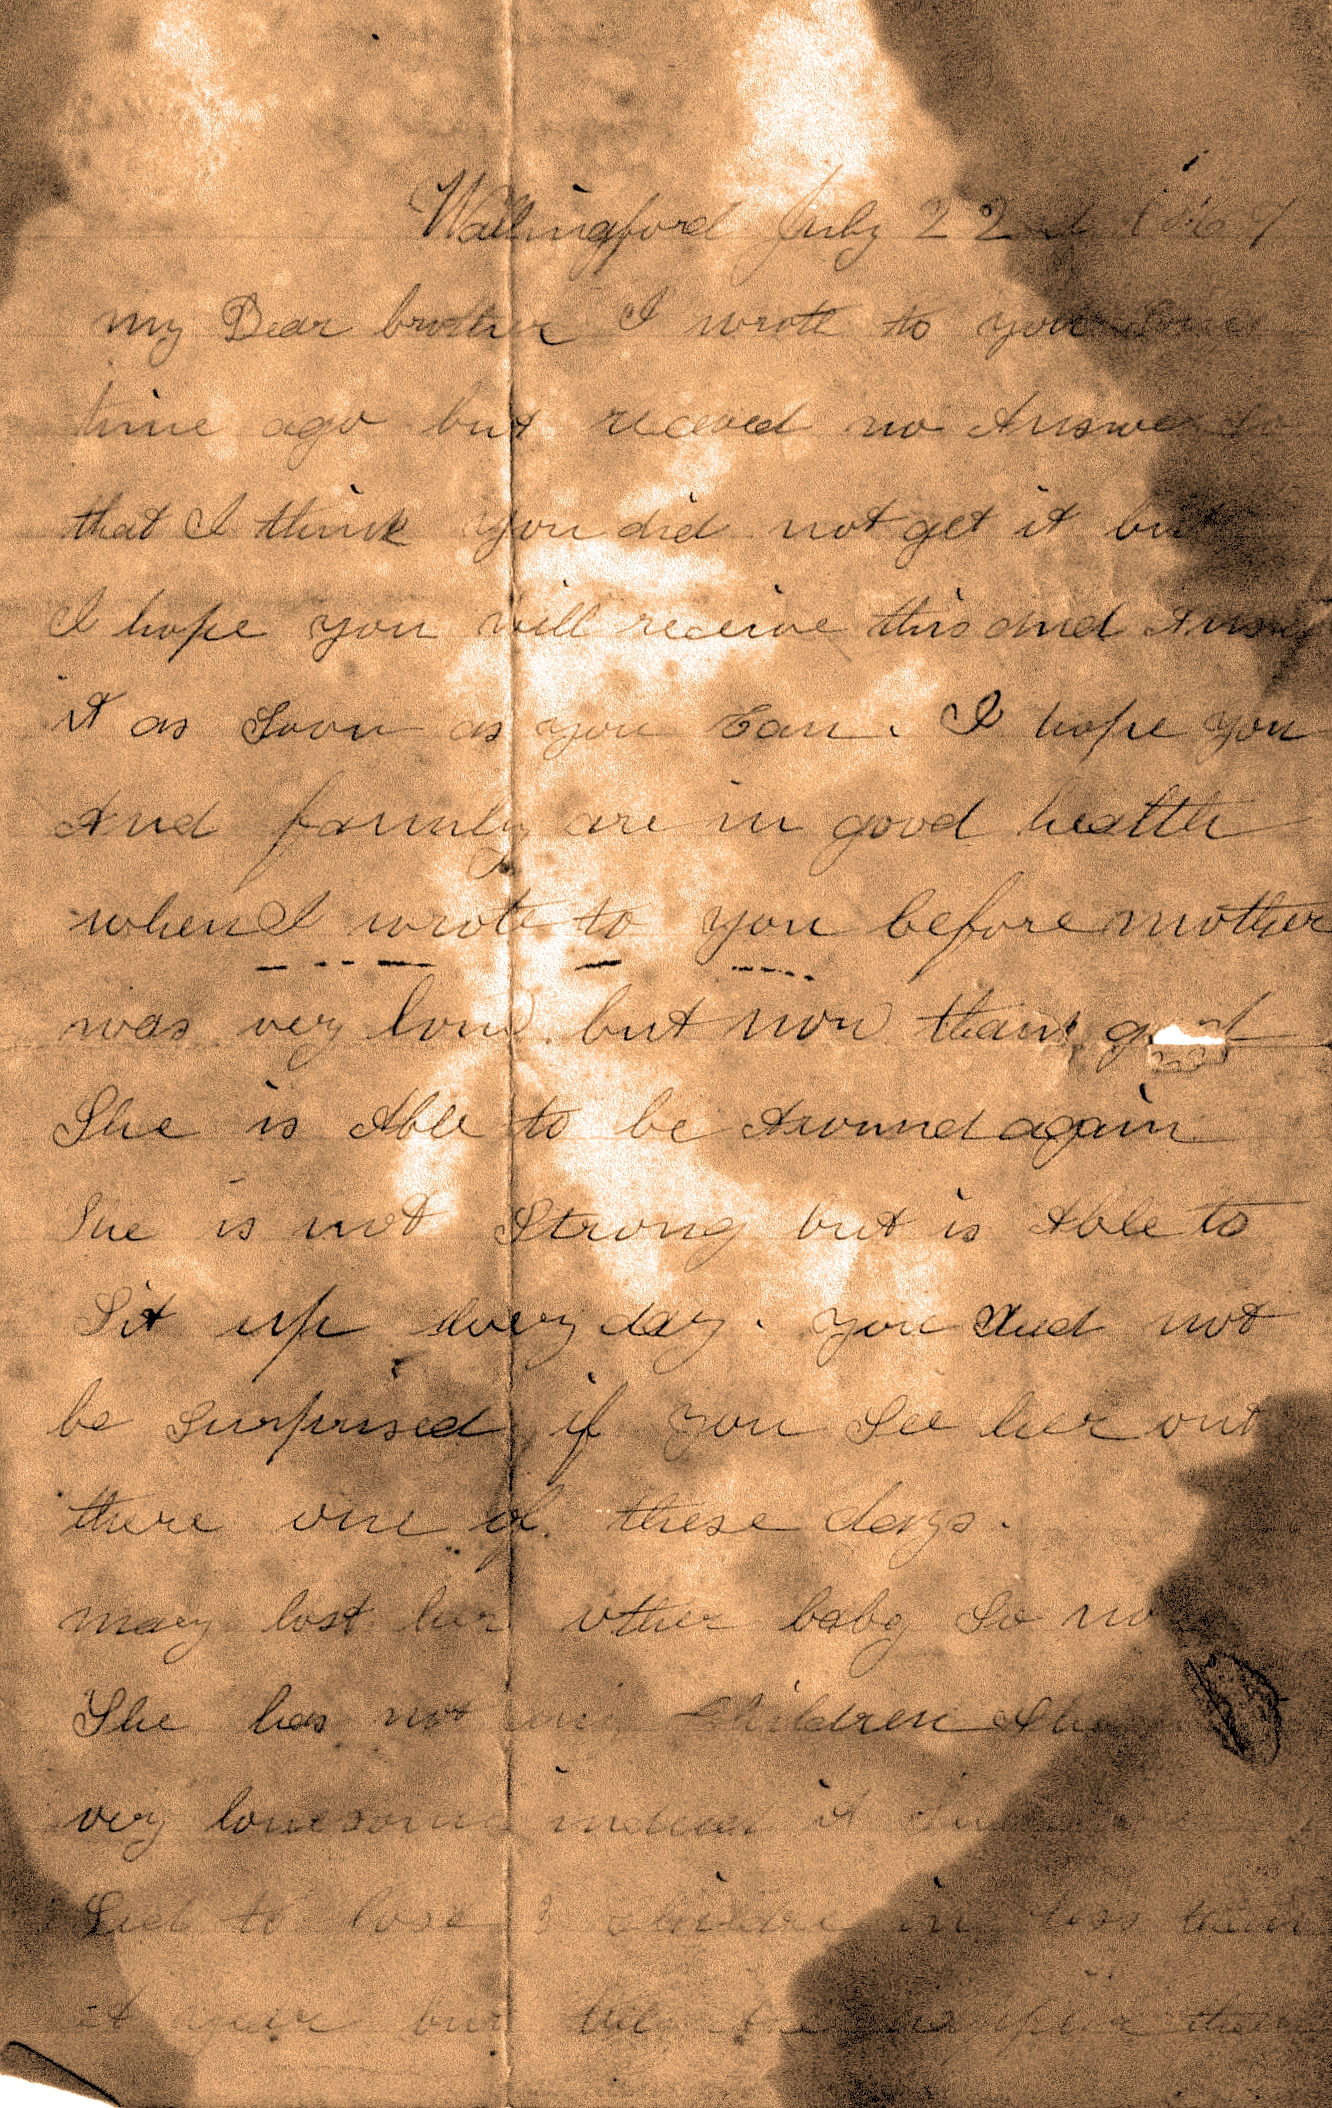 Wallingford July 22nd
my Dear brother I wrote to you Some
time ago but receved no Answer So
that I think you did not get it but
I hope you will receive this and Answer
it as Soon as you Can. I hope you
And family are in good health
when I wrote to you before mother
was very low but now thank god
She is Able to be Around again
She is not Strong but is Able to
Sit up every day. you need not
be Surprised if you See her out
there one of these days.
mary lost her other baby So now
She has not any Children She
very lonesome indeed it
Sad to lose 3 children in less than
A year but